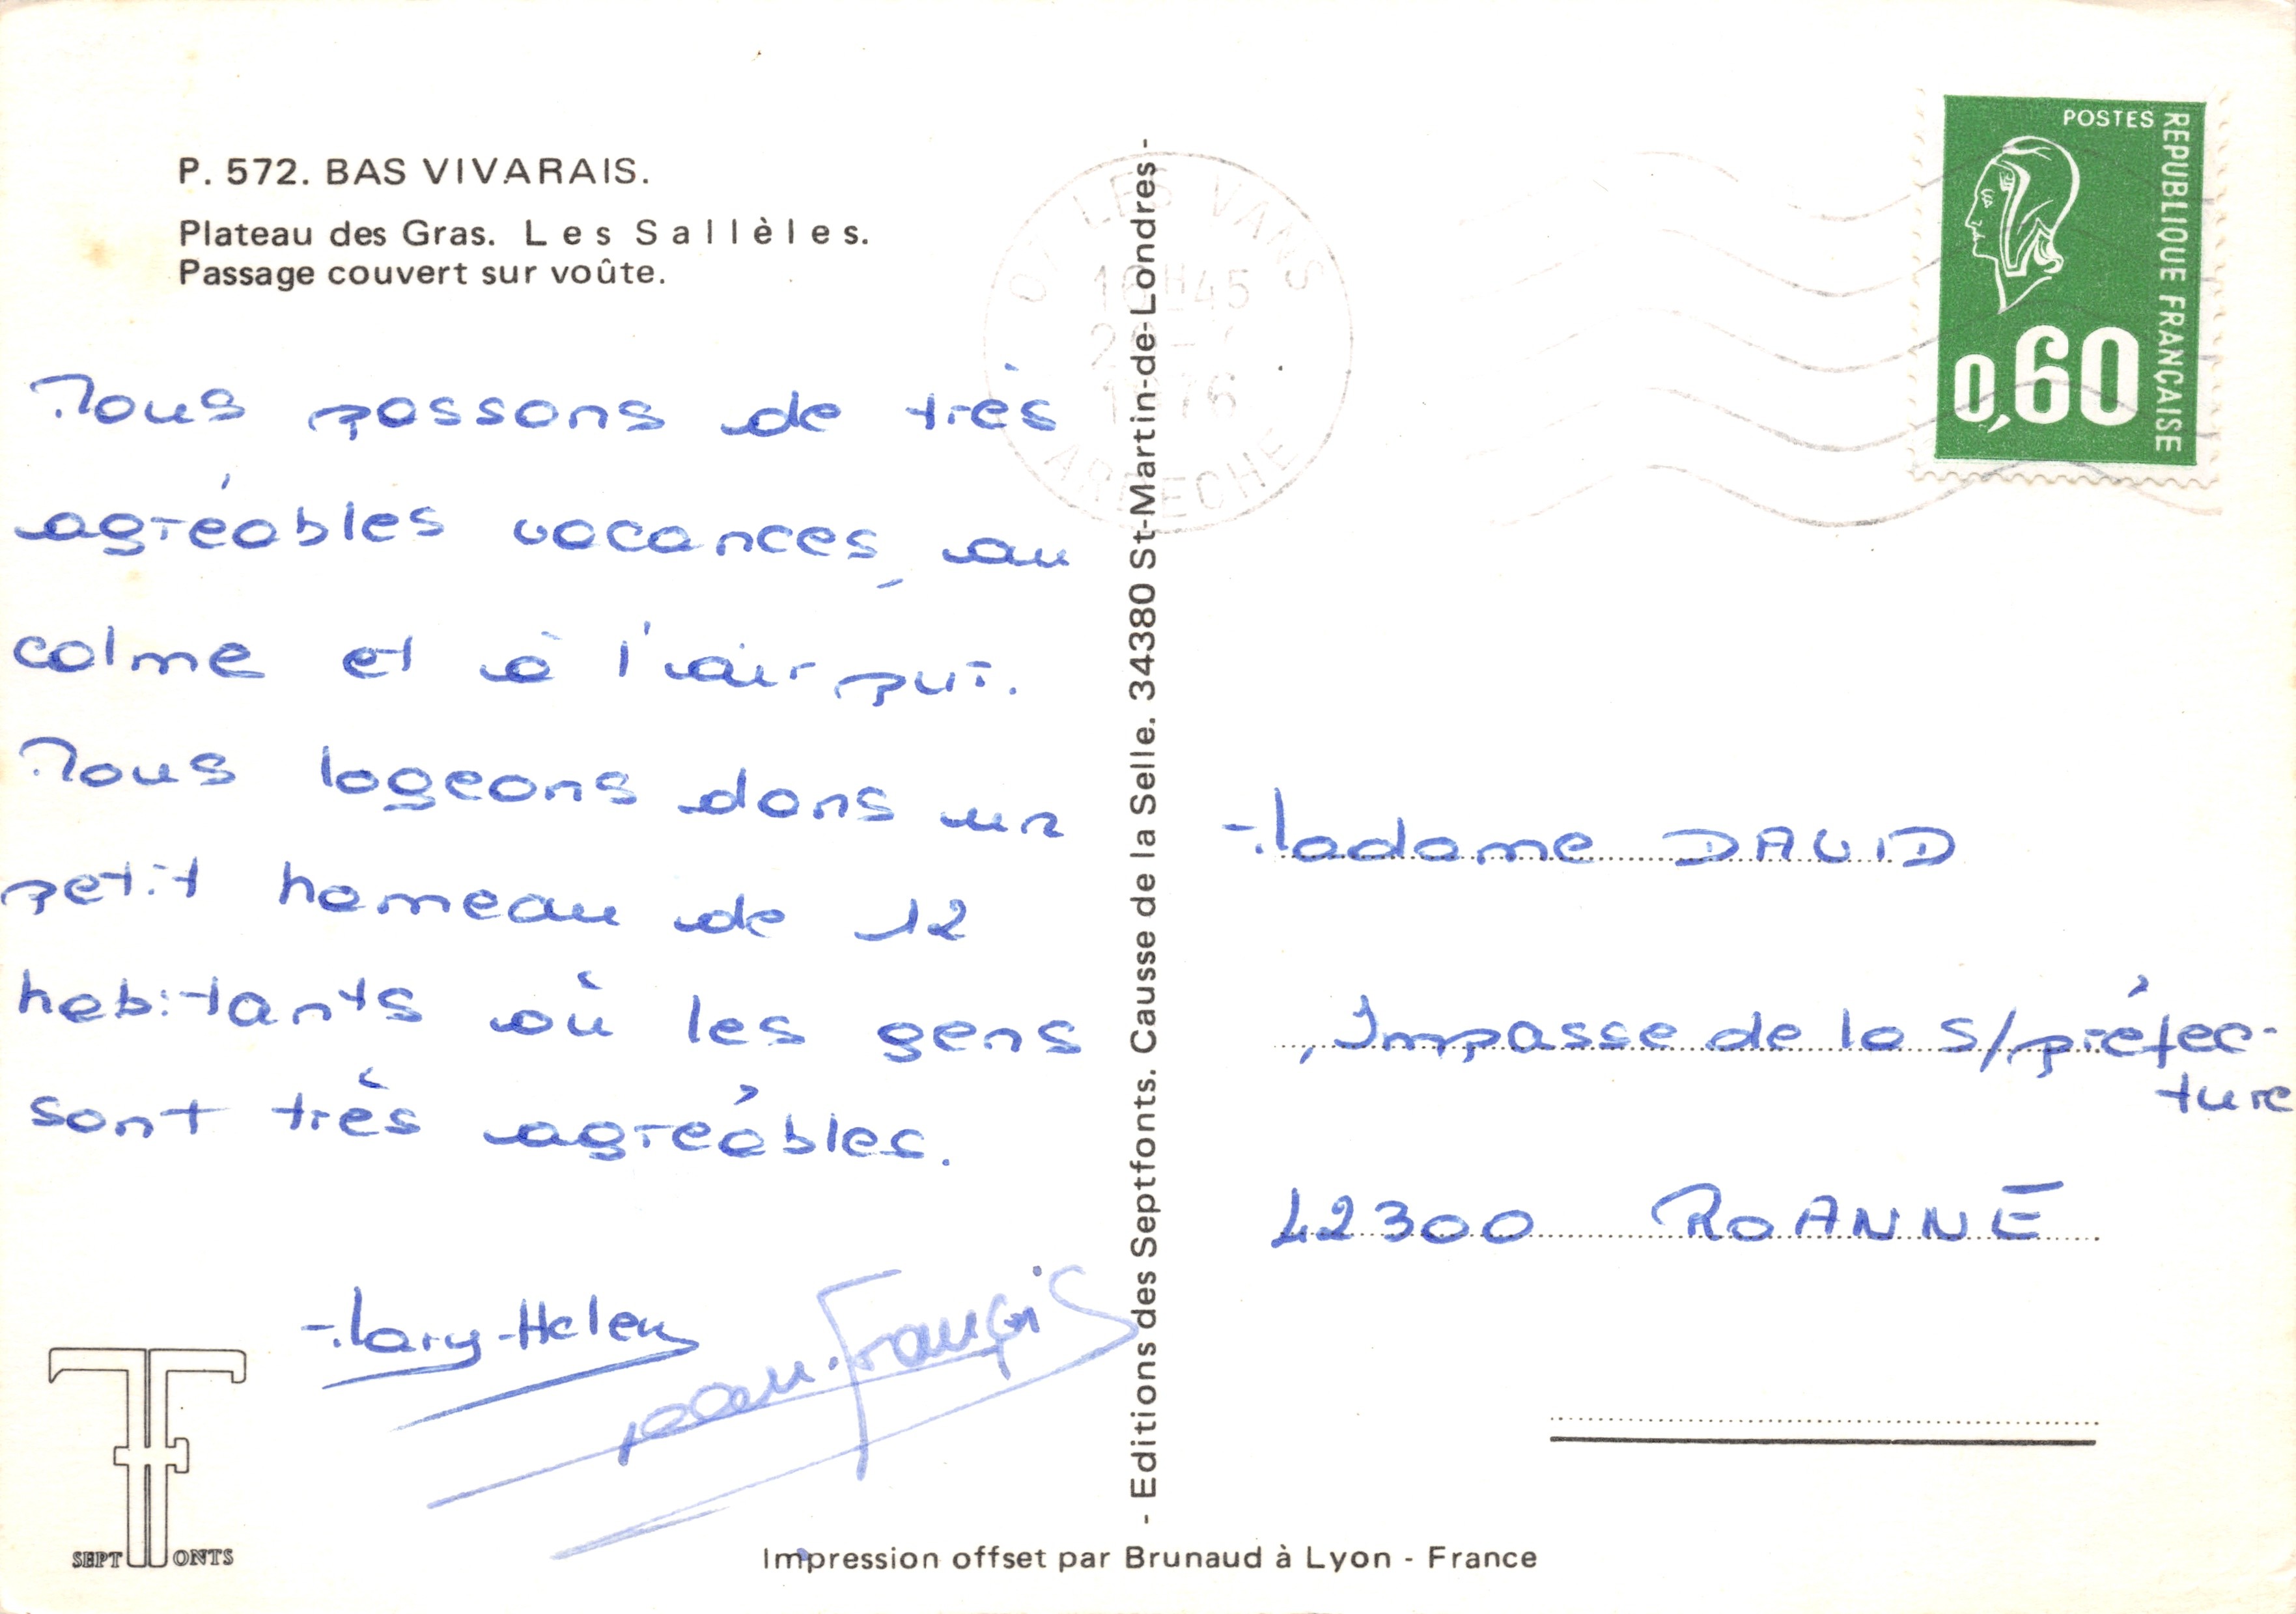 P. 572. BAS VIVARAIS.
Plateau des Gras. Les Sallèles.
Passage couvert sur voûte.
Nous passons de très
agréables vacances, au
calme et à l'air pur.
Nous logeons dans un
petit hameau de 12
habitants où les gens
sont très agréables.
Mary-Helen
Jean-François
SEPT FONTS
- Editions des Septfonts. Causse de la Selle. 34380 St-Martin-de-Londres -
Impression offset par Brunaud à Lyon - France
07 LES VANS
18H45
1976
ARDECHE
POSTES
REPUBLIQUE FRANÇAISE
0,60
Madame DAVID
, Impasse de la s/préfec-
ture
42300 ROANNE